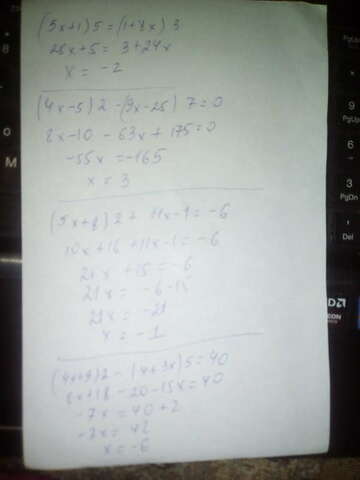 (5x+1)5=(1+8x)3
25x+5=3+24x
x=-2
(4x-5)2-(9x-25)7=0
8x-10-63x+175=0
-55x=-165
x=3
(5x+8)2+11x-1=-6
10x+16+11x-1=-6
21x+15=-6
21x=-6-15
21x=-21
x=-1
(4x+9)2-(4+3x)5=40
8x+18-20-15x=40
-7x=40+2
-7x=42
x=-6
PgUp
PgDn
Del
AMD